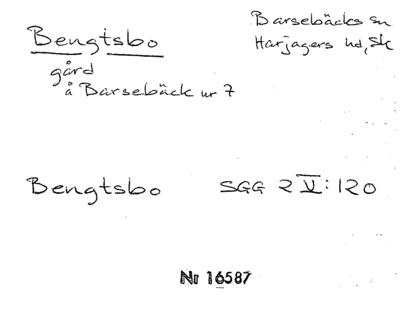 Bengtsbo
Barsebäcks sn
Harjagers hd, Sk
gård
å Barsebäck nr 7
Bengtsbo SGG 2 V:120
Nr 16587